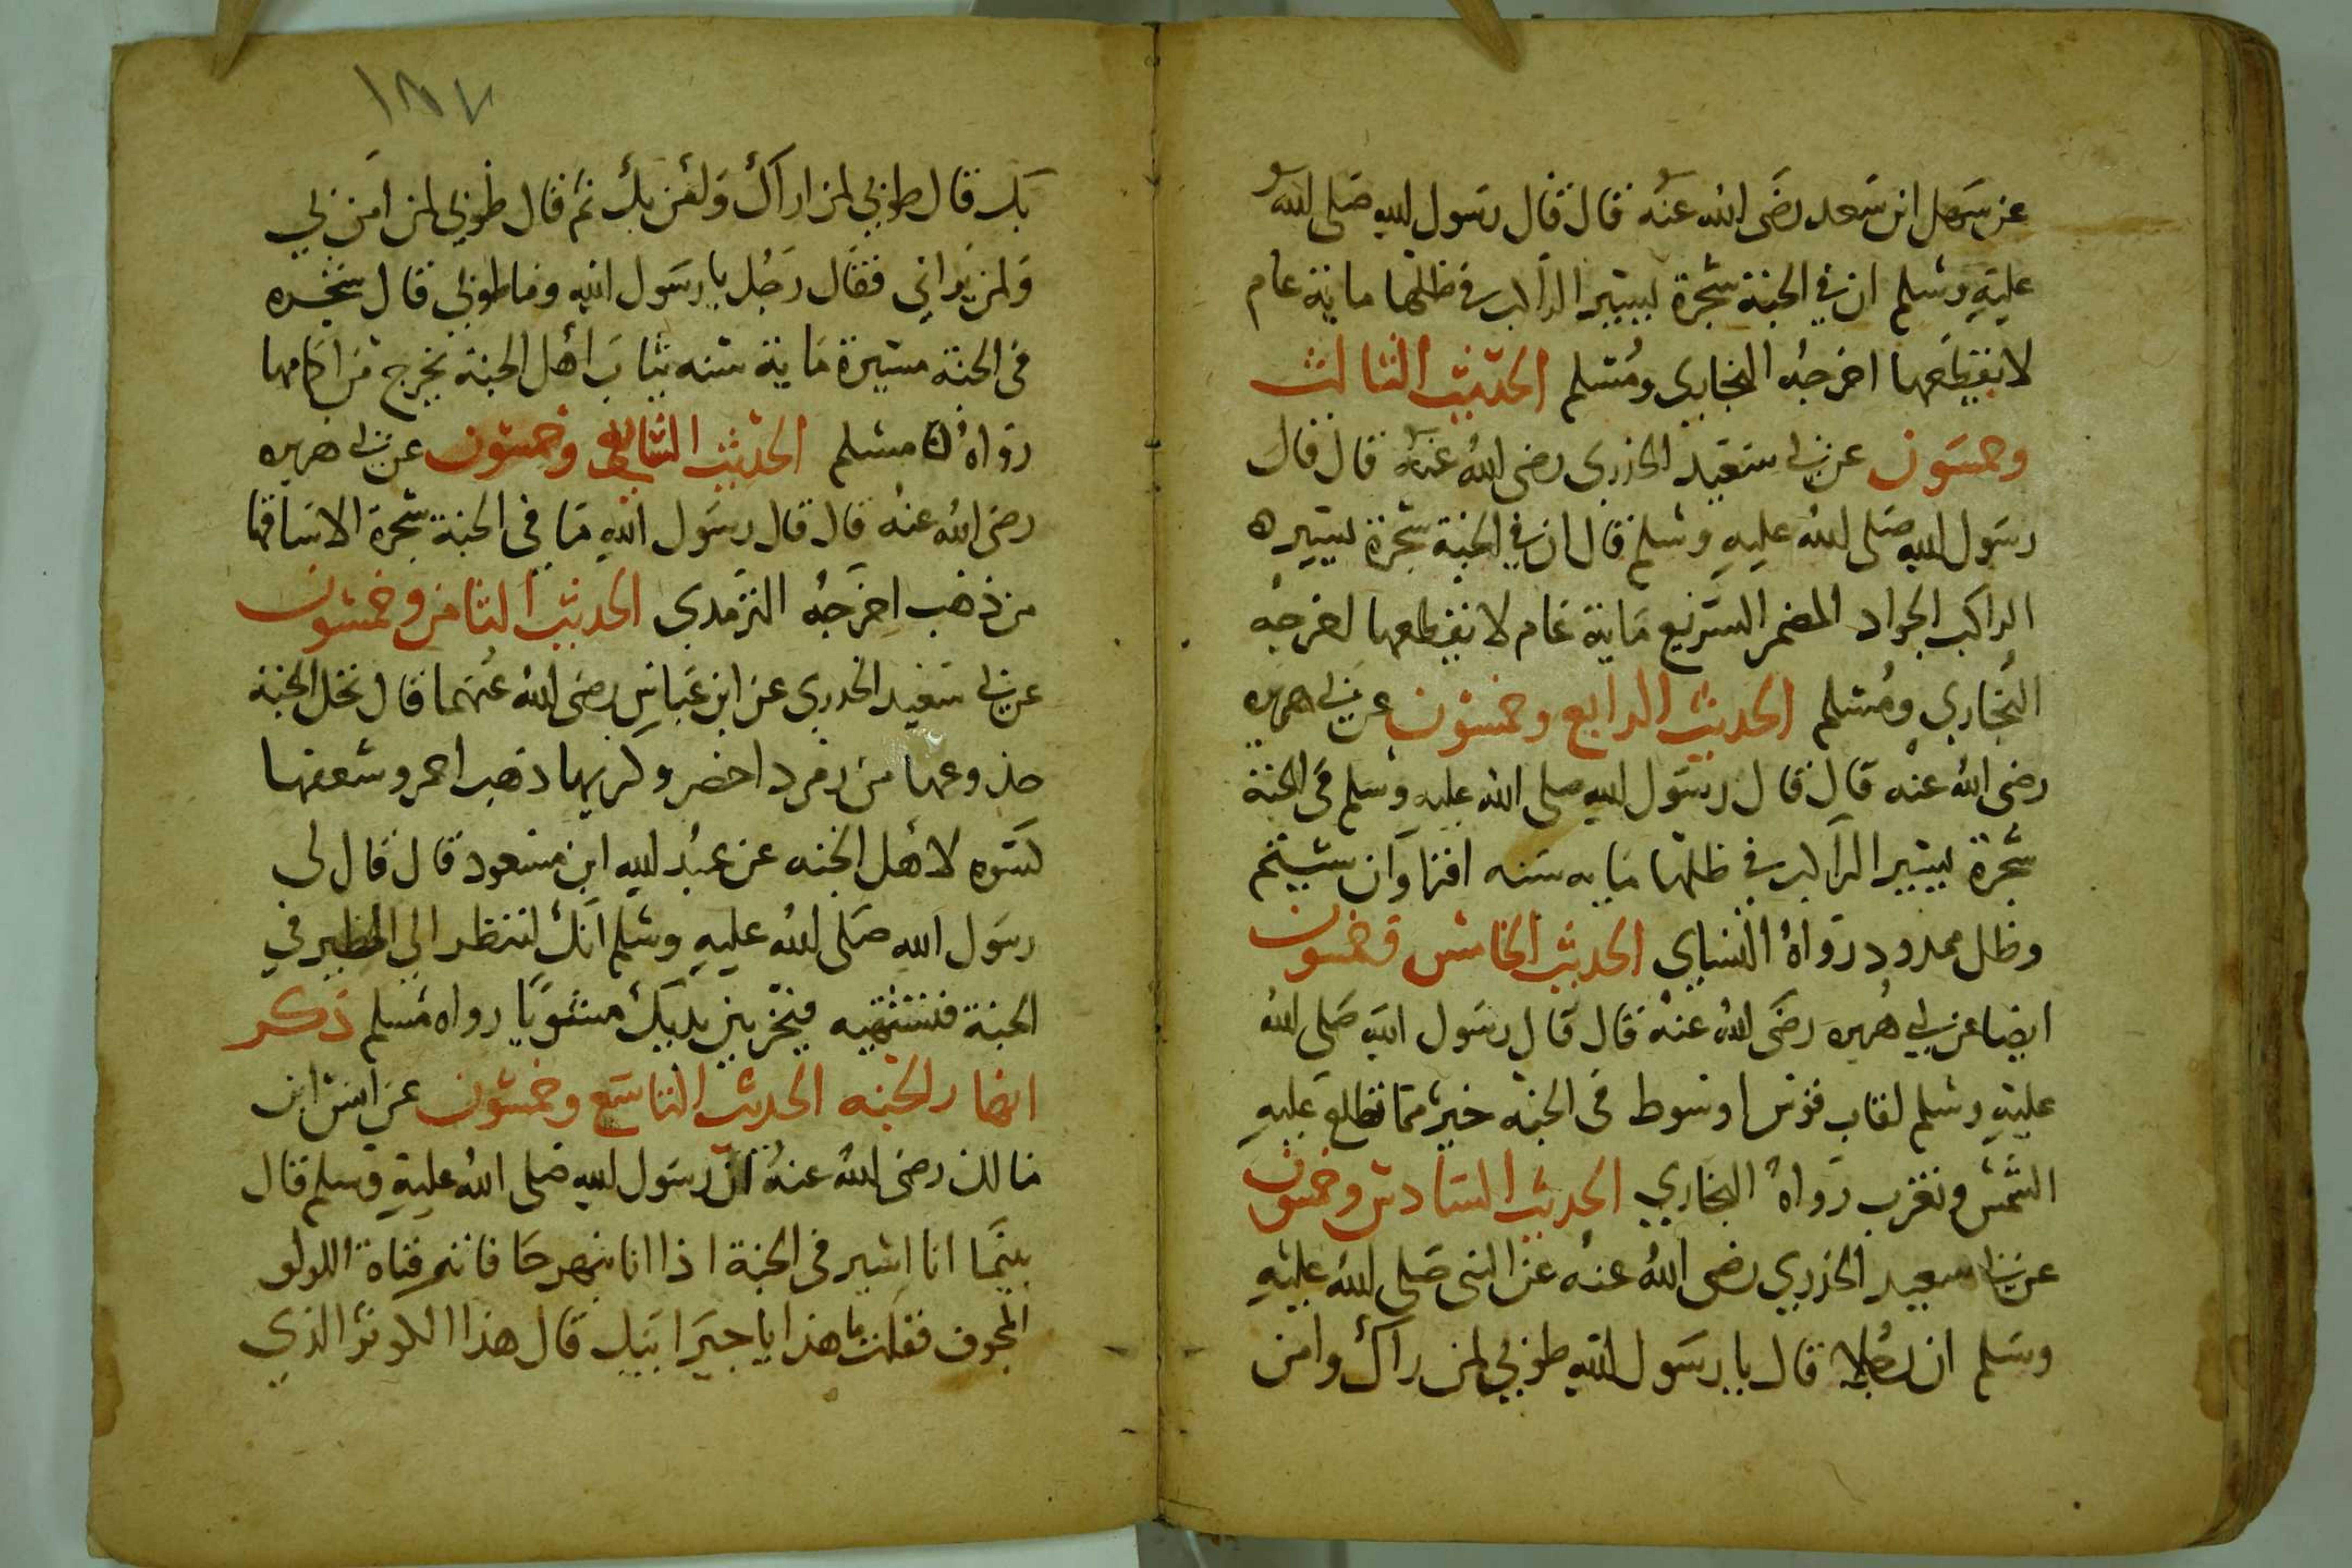 عن سهل ابن سعد رضى الله عنه قال قال رسول الله صلى الله
عليه وسلم ان في الجنة شجرة ليسير الراكب في ظلها ماية عام
لا يقطعها اخرجه البخاري ومسلم الحديث الثالث
وخمسون عن ابي سعيد الخذري رضى الله عنه قال قال
رسول الله صلى الله عليه وسلم قال ان في الجنة شجرة ليسيره
الراكب الجواد المضمر السريع ماية عام لا يقطعها اخرجه
البخاري ومسلم الحديث الرابع وخمسون عن ابي هريره
رضى الله عنه قال قال رسول الله صلى الله عليه وسلم في الجنة
شجرة ليسير الراكب في ظلها مايه سنه اقرا وان شيتم
وظل ممدود رواه النساي الحديث الخامس وخمسون
ايضا عن ابي هريره رضى الله عنه قال قال رسول الله صلى الله
عليه وسلم لقاب قوس او سوط في الجنه خير مما تطلع عليه
الشمس وتغرب رواه البخاري الحديث السادس وخمسون
عن ابي سعيد الخذري رضى الله عنه عن النبى صلى الله عليه
وسلم ان رجلا قال يا رسول الله طوبي لمن راك وامن
١٨٧
بك قال طوبي لمن اراك ولمن بك ثم قال طوبي لمن امن بي
ولمن يراني فقال رجل يا رسول الله وما طوبي قال شجره
في الجنة مسيرة ماية سنه ثياب اهل الجنة تخرج من اكمامها
رواه مسلم الحديث السابع وخمسون عن ابي هريره
رضى الله عنه قال قال رسول الله ما في الجنة شجرة الا ساقها
من ذهب اخرجه الترمدي الحديث الثامن وخمسون
عن ابي سعيد الخدري عن ابن عباس رضى الله عنهما قال نخل الجنة
جذوعها من زمرد اخضر وكربها دهب احمر وسعفها
كسوه لاهل الجنه عن عبد الله ابن مسعود قال قال لي
رسول الله صلى الله عليه وسلم انك لتنظر الي الطير في
الجنة فتشتهيه فيخر بين يديك مشويا رواه مسلم ذكر
انهار الجنه الحديث التاسع وخمسون عن انس ابن
مالك رضى الله عنه ان رسول الله صلى الله عليه وسلم قال
بينما انا اسير في الجنة اذا انا بنهر حافاته قناة اللولو
المجوف فقلت ما هذا يا جبرابيل قال هذا الكوثر الذي